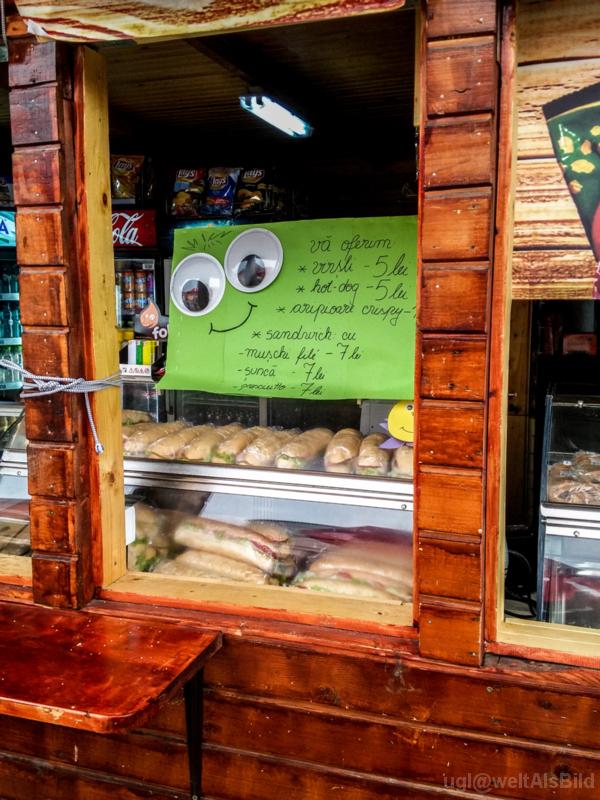 Lay's
Lay's
Lay's
Cola
vă oferim
* vrsli - 5 lei
* hot-dog - 5 lei
* aripioare crispy -
* sandwich cu
- muschi file - 7 lei
- șuncă - 7 lei
- prosciutto - 7 lei
fo
ugl@weltAlsBild